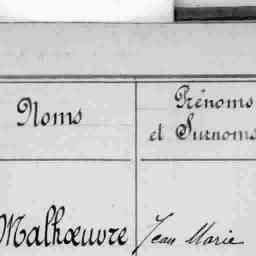 Noms
Prénoms
et Surnoms
Malhœuvre
Jean Marie